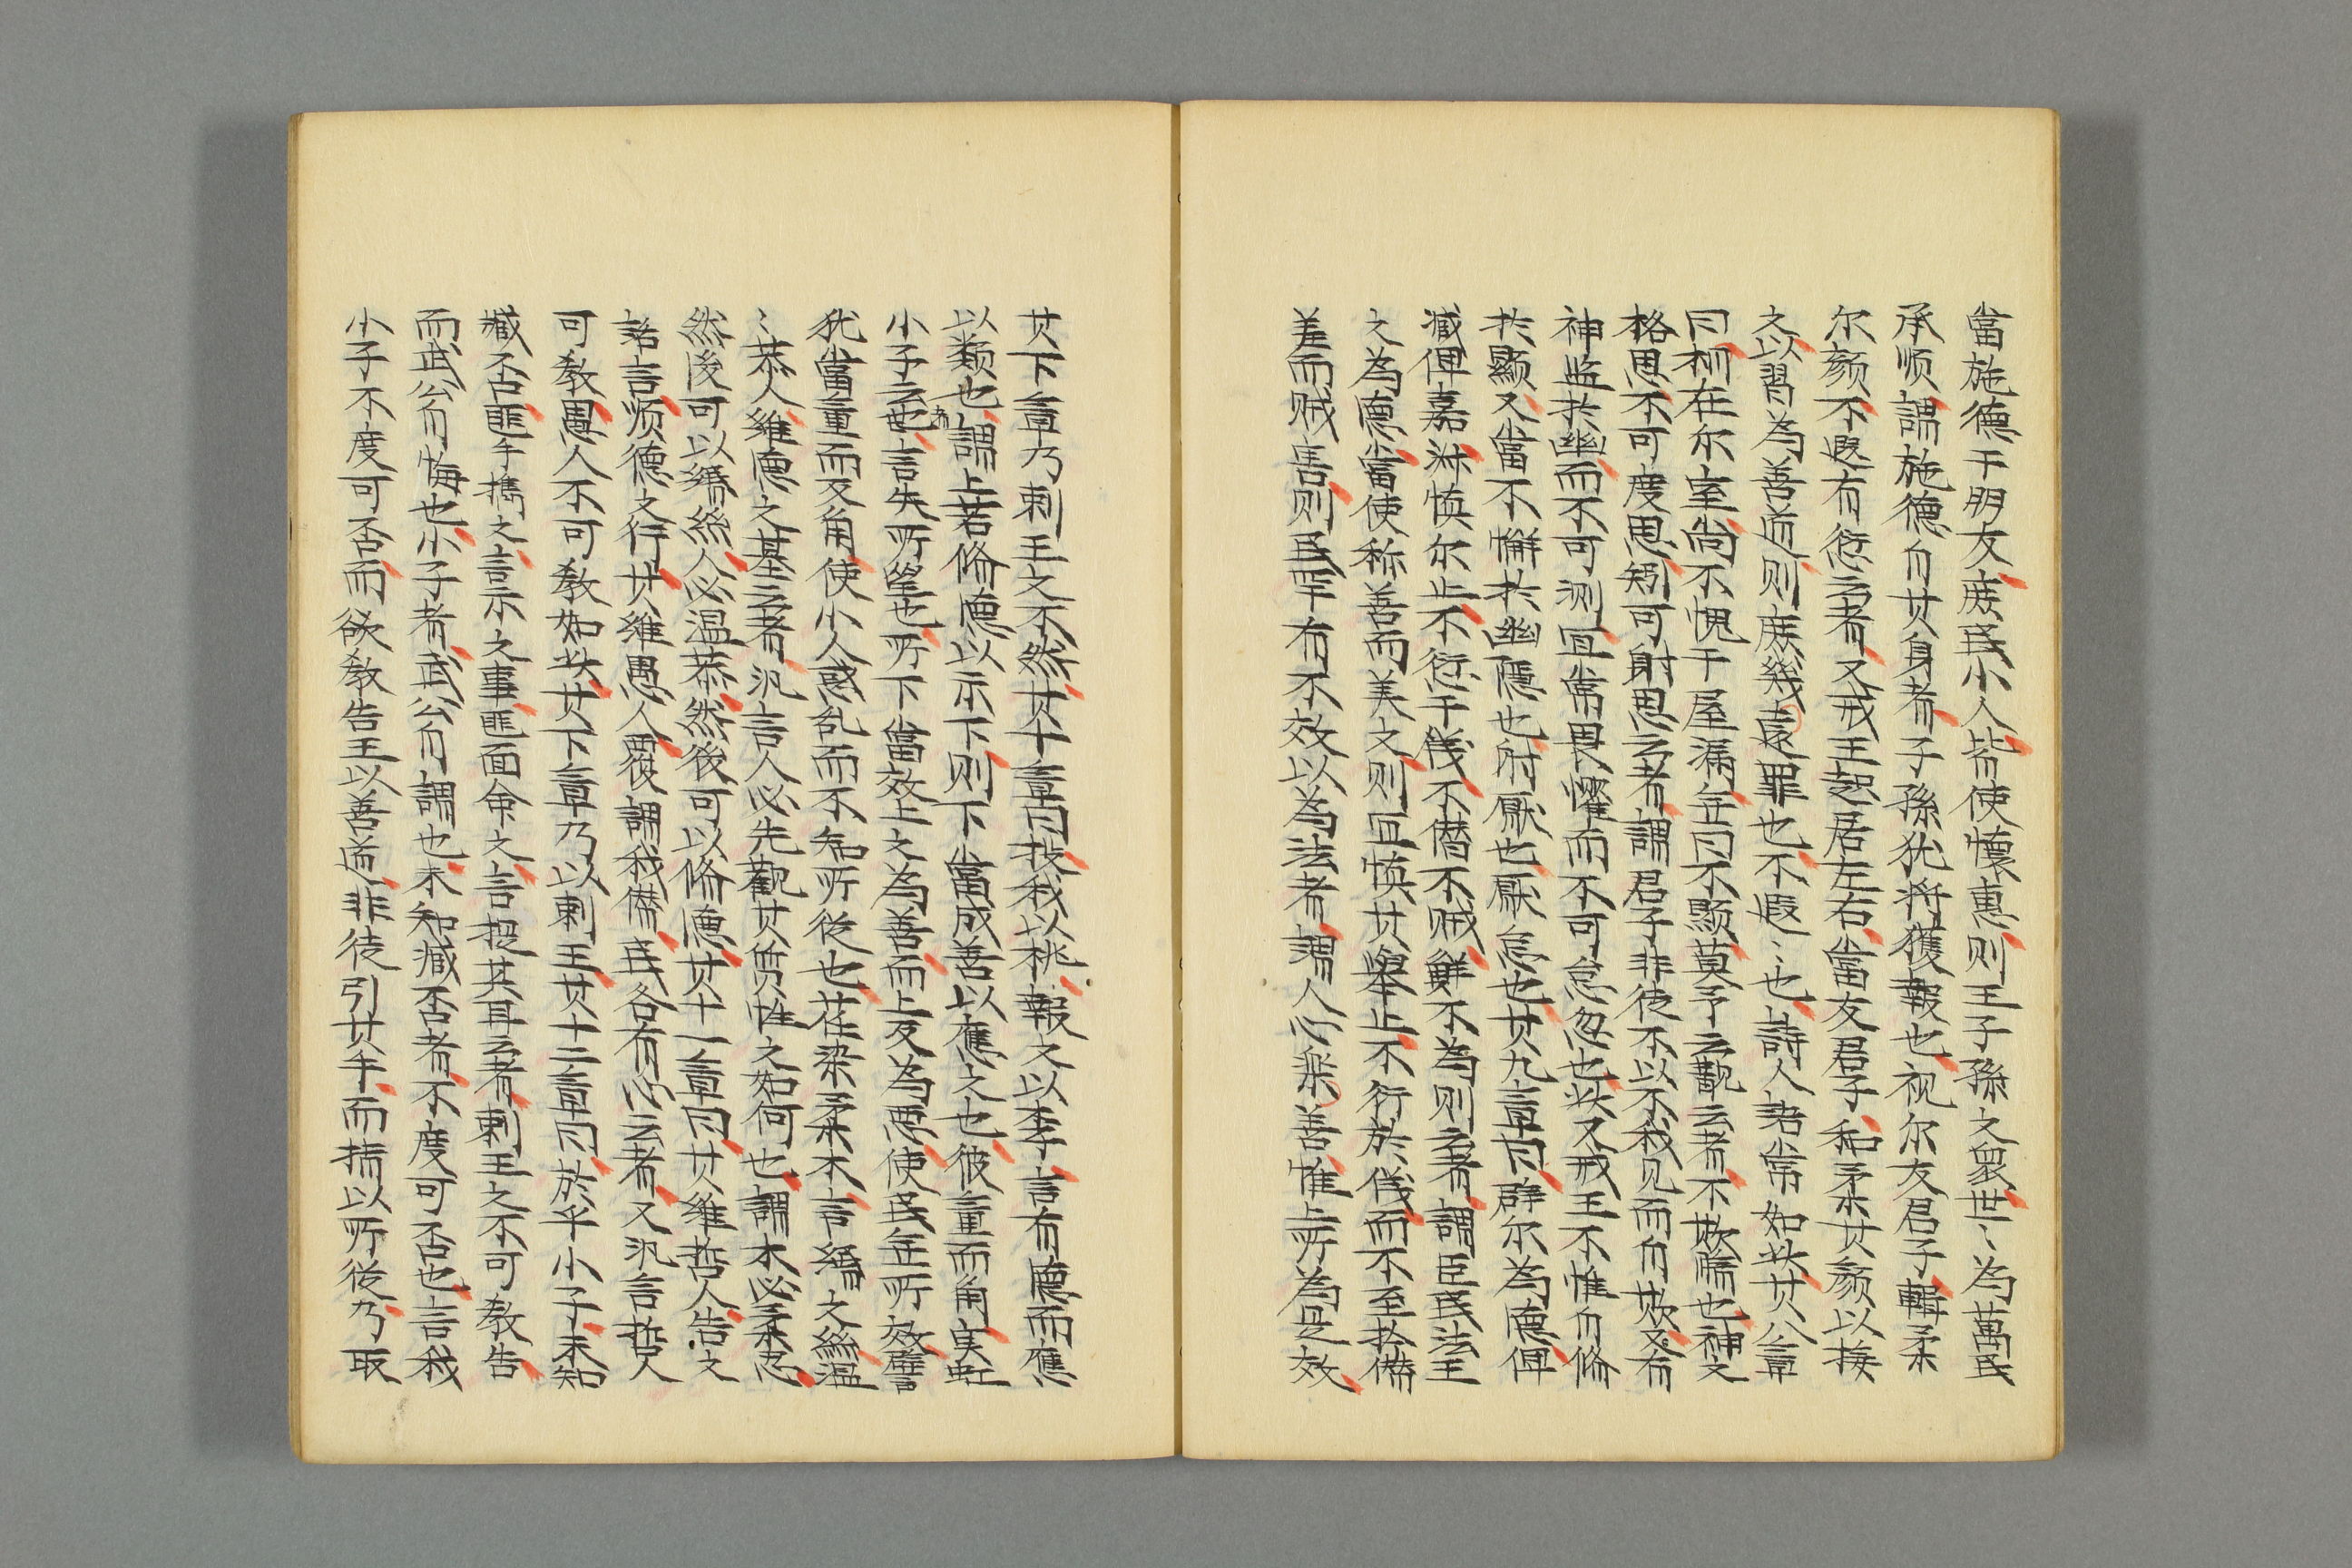 當施德于朋友庶民小人皆使懷惠则王子孫之眾世〻為萬民
承顺謂施德自其身者子孫犹將獲報也视尔友君子輯柔
尔颜不遐有愆云者又戒王起居左右當友君子和柔其颜以接
之以習為善道则庶幾遠罪也不遐〻也詩人語常如此其八章
曰相在尔室尚不愧于屋漏無曰不顯莫予云覯云者不欺暗也神之
格思不可度思矧可射思云者謂君子非徒不以不我见而自欺又有
神监於幽而不可测宜常畏懼而不可怠忽也此又戒王不惟自修
於顯又當不懈於幽隱也射厭也厭怠也其九章曰辟尔為德俾
臧俾嘉淑慎尔止不愆于儀不僭不贼鮮不為则云者謂臣民法王
之為德當使称善而美之则宜慎其舉止不行於儀而不至於僭
差而贼害则民罕有不效以為法者謂人心樂善惟上所為是效
其下章乃刺王之不然其十章曰投我以桃報之以李言有德而應
以類也謂上若修德以示下则下當成善以應之也彼童而角実虹
小子云也言失所望也所下當效上之為善而上反為悪使民無所效譬
犹當童而又角使小人惑乱而不知所從也荏染柔木言緡之絲溫
〻恭人維德之基云者汎言人必先觀其質性之如何也謂木必柔忍
然後可以緡絲人必温恭然後可以修德其十一章曰其維哲人告之
話言顺德之行其維愚人覆謂我僭民各有心云者又汎言哲人
可教愚人不可教如此其下章乃以刺王其十二章曰於乎小子未知
臧否匪手携之言示之事匪面命之言提其耳云者刺王之不可教告
而武公自悔也小子者武公自謂也未知臧否者不度可否也言我
小子不度可否而欲教告王以善道非徒引其手而指以所從乃取